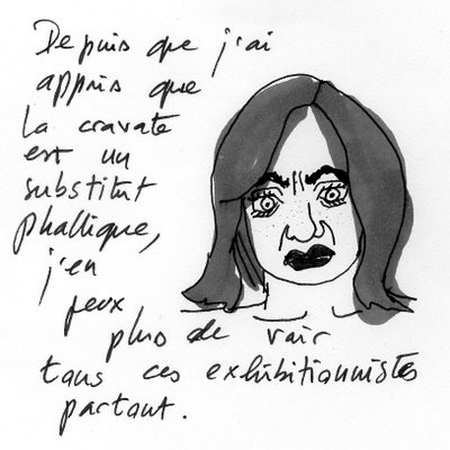 Depuis que j'ai
appris que
la cravate
est un
substitut
phallique,
j'en
peux
plus de voir
tous ces exhibitionnistes
partout.